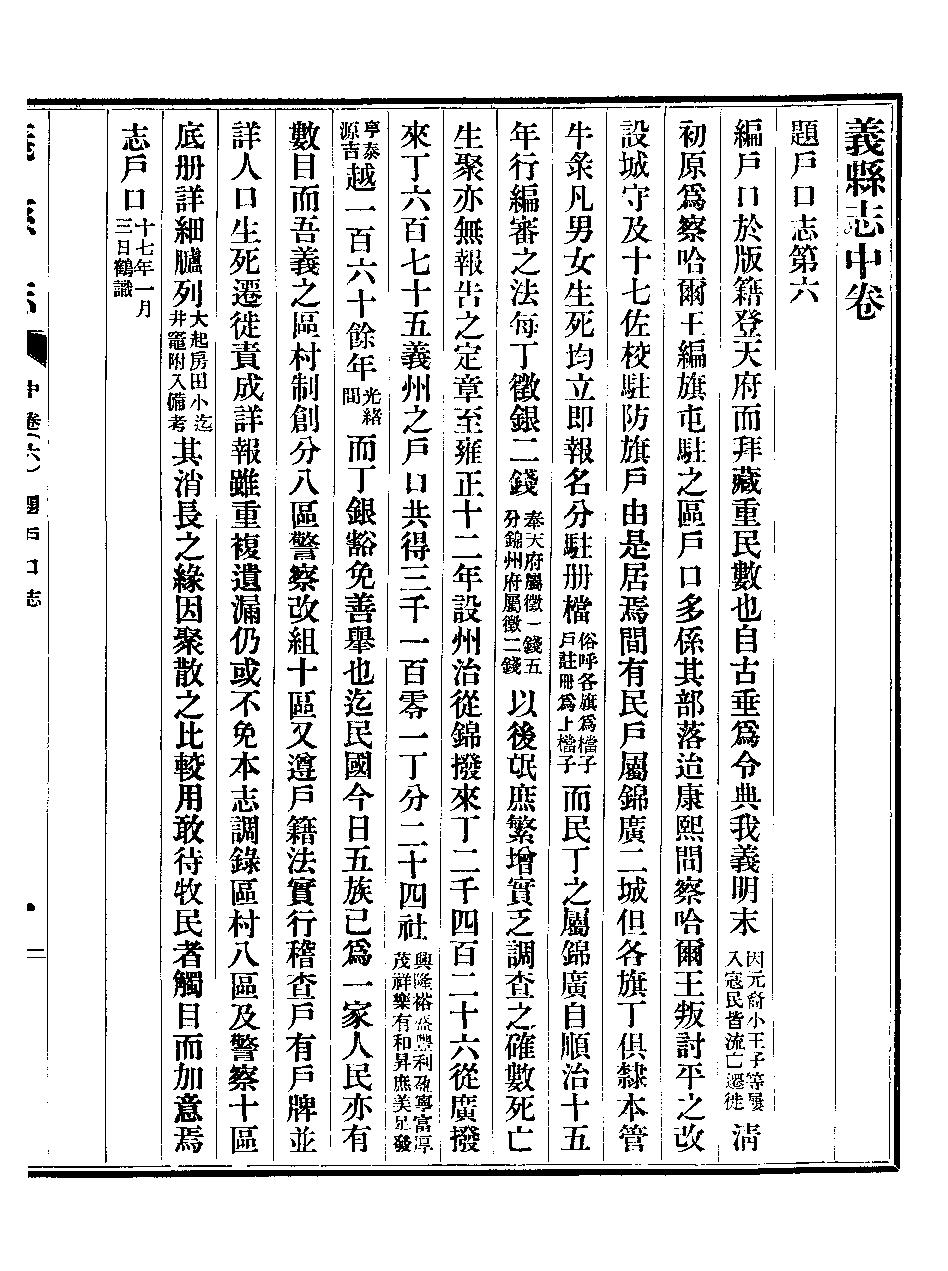 義縣志中卷
題戶口志第六
編戶口於版籍登天府而拜藏重民數也自古垂爲令典我義明末因元裔小王子等屢入寇民皆流亡遷徙淸
初原爲察哈爾王編旗屯駐之區戶口多係其部落迨康熙間察哈爾王叛討平之改
設城守及十七佐校駐防旗戶由是居焉間有民戶屬錦廣二城但各旗丁俱隸本管
牛彔凡男女生死均立即報名分駐册檔俗呼各旗爲檔子戶註冊爲上檔子而民丁之屬錦廣自順治十五
年行編審之法每丁徵銀二錢奉天府屬徵一錢五分錦州府屬徵二錢以後氓庶繁增實乏調查之確數死亡
生聚亦無報吿之定章至雍正十二年設州治從錦撥來丁二千四百二十六從廣撥
來丁六百七十五義州之戶口共得三千一百零一丁分二十四社興隆裕盛豐利盈寧富淳茂祥樂有和昇庶美足發
亨泰源吉越一百六十餘年光緖間而丁銀豁免善舉也迄民國今日五族已爲一家人民亦有
數目而吾義之區村制創分八區警察改組十區又遵戶籍法實行稽查戶有戶牌並
詳人口生死遷徙責成詳報雖重複遺漏仍或不免本志調錄區村八區及警察十區
底册詳細臚列大起房田小迄井竈附入備考其消長之緣因聚散之比較用敢待牧民者觸目而加意焉
志戶口十七年一月三日鶴識
義縣志 中卷(六) 題戶口志 一